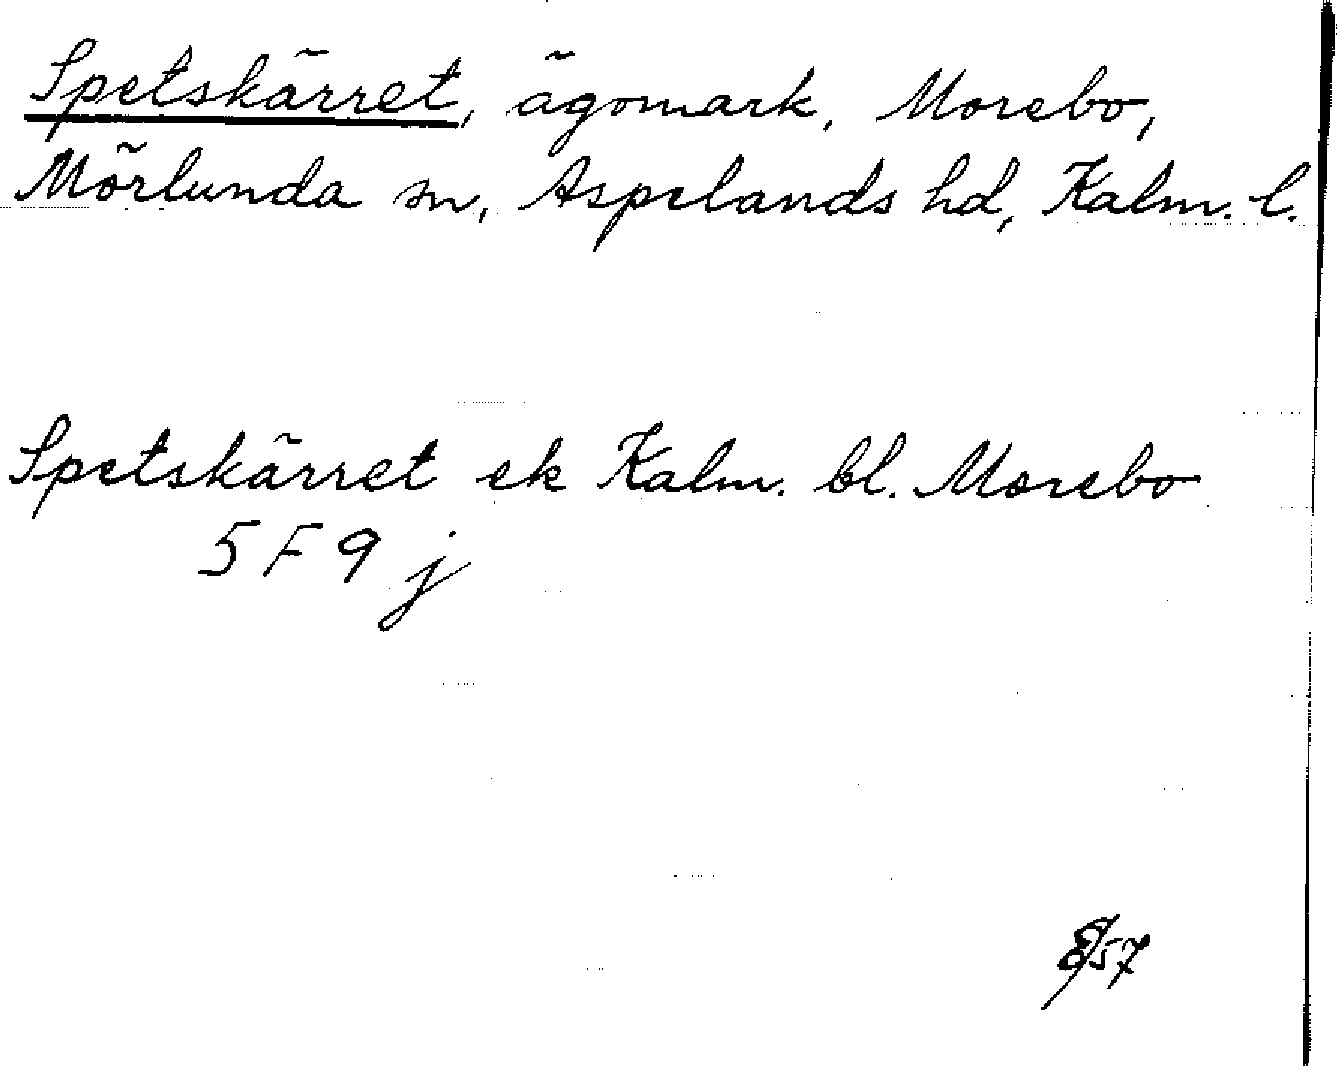 Spetskärret, ägomark, Morebo,
Mörlunda sn, Aspelands hd, Kalm. l.
Spetskärret ek Kalm. bl. Morebo
5 F 9 j
/57